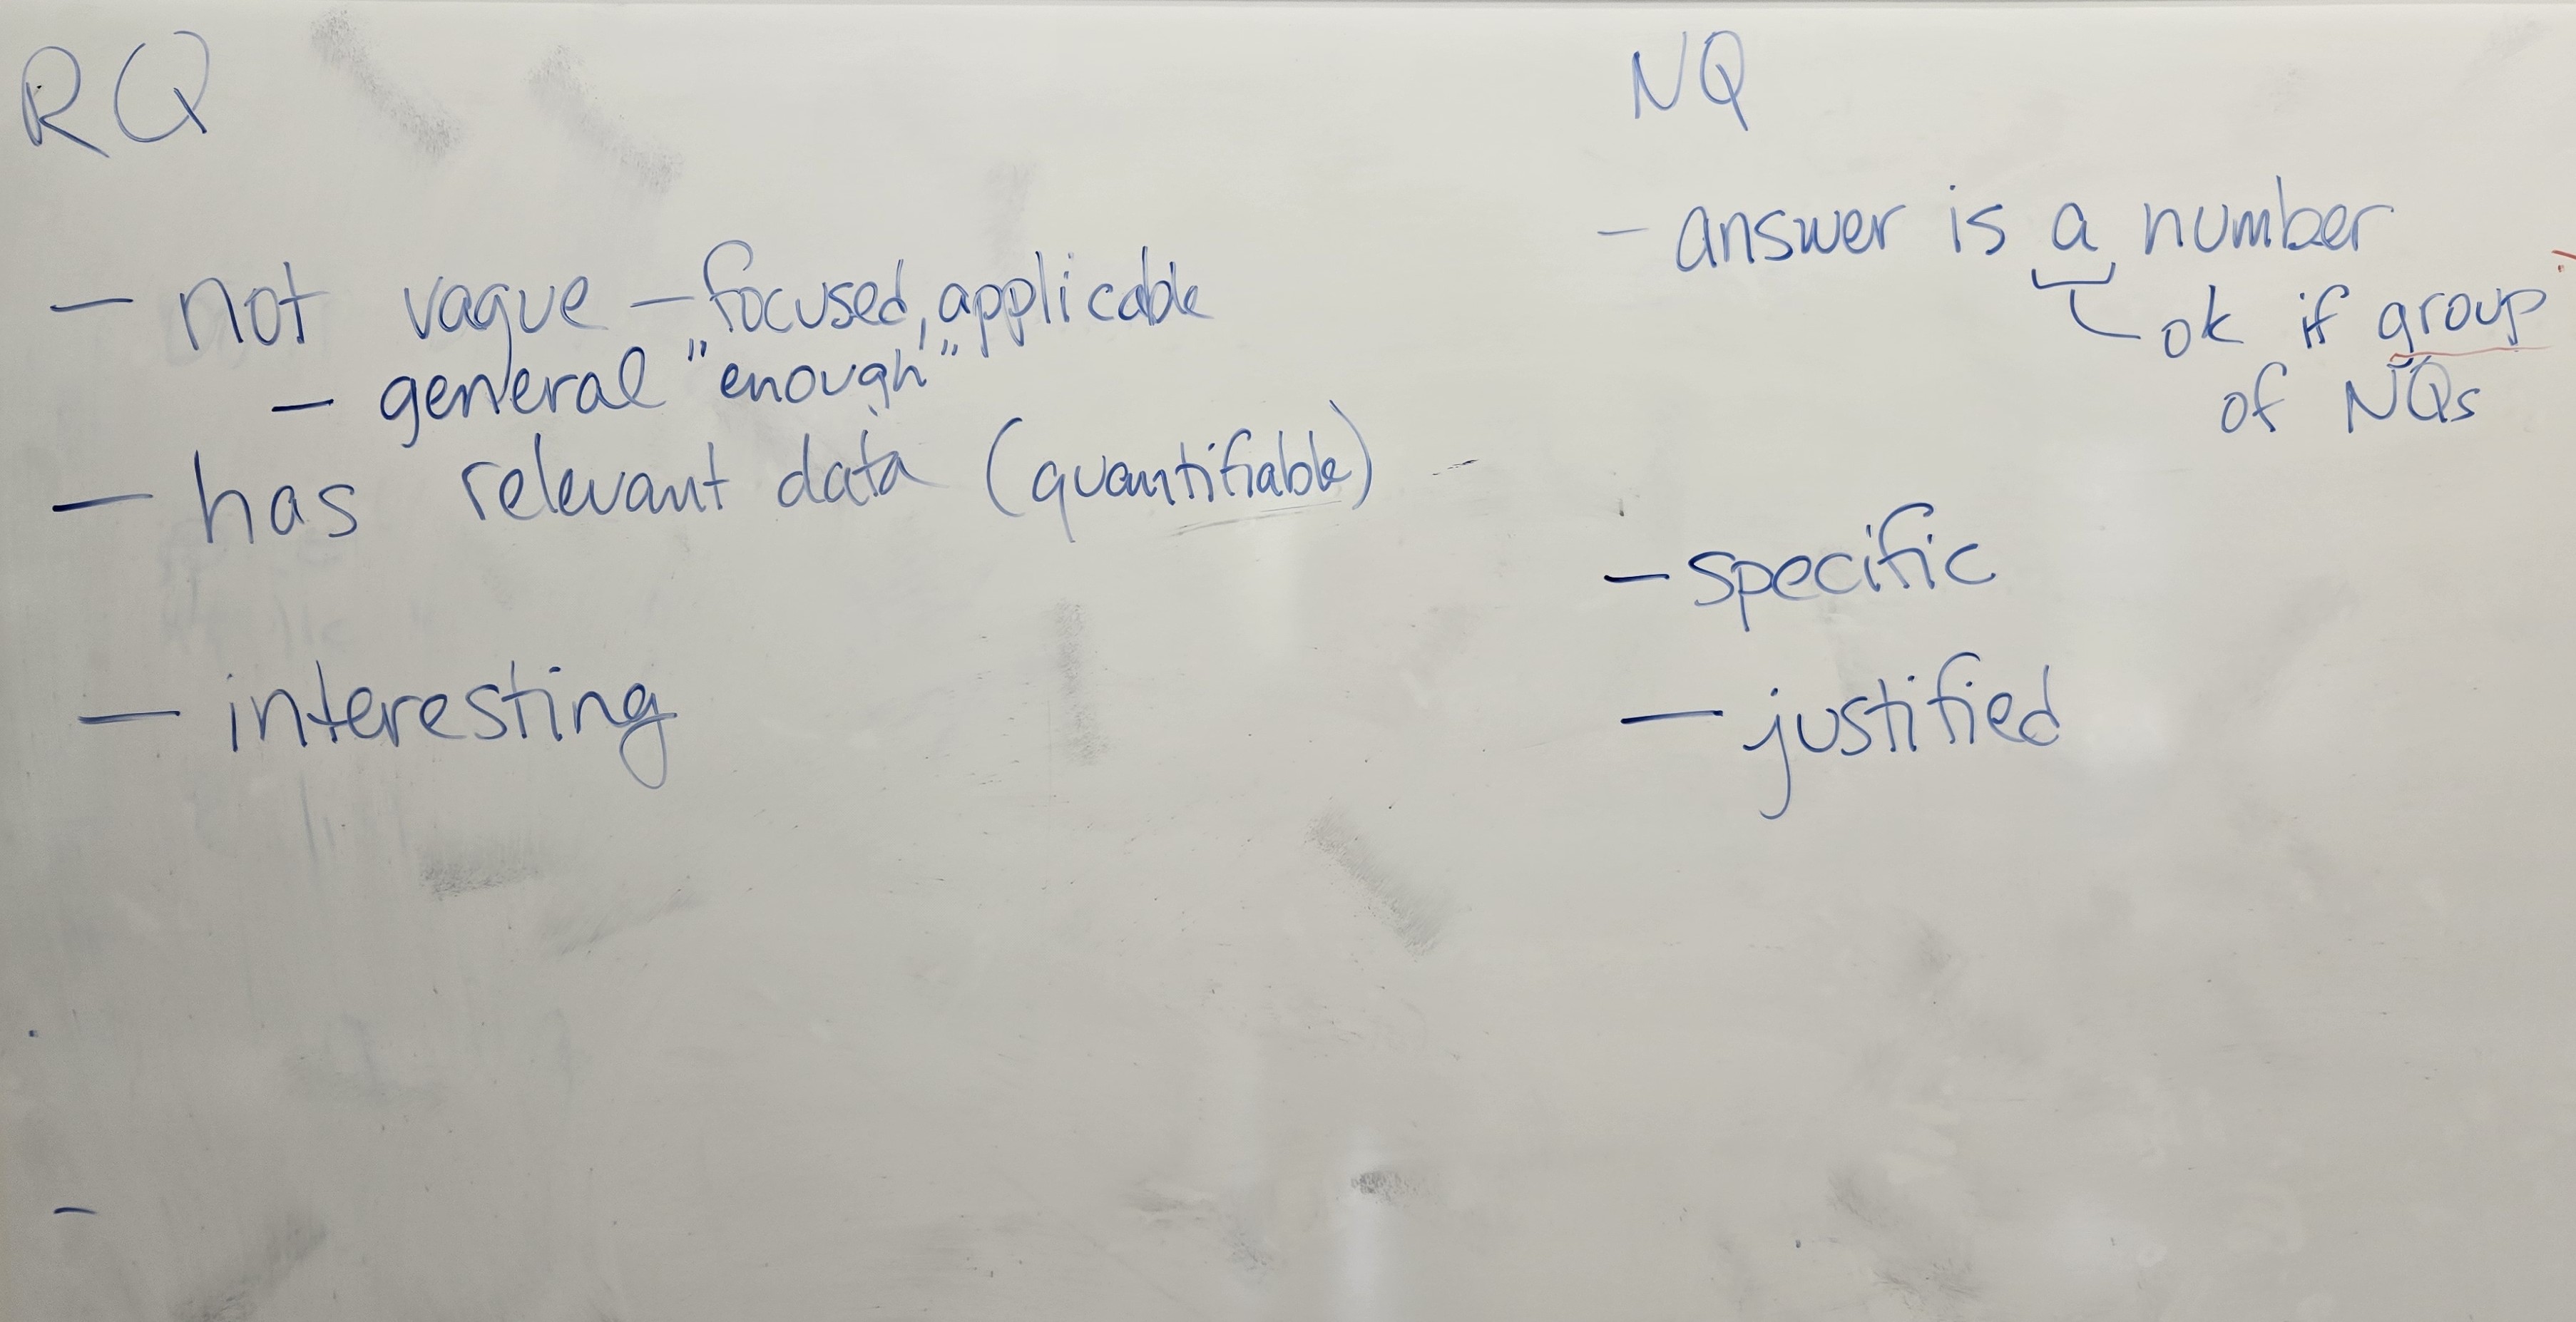 RQ
- not vague - focused, applicable
- general "enough"
- has relevant data (quantifiable)
- interesting
-
NQ
- answer is a number
ok if group
of NQs
- specific
- justified